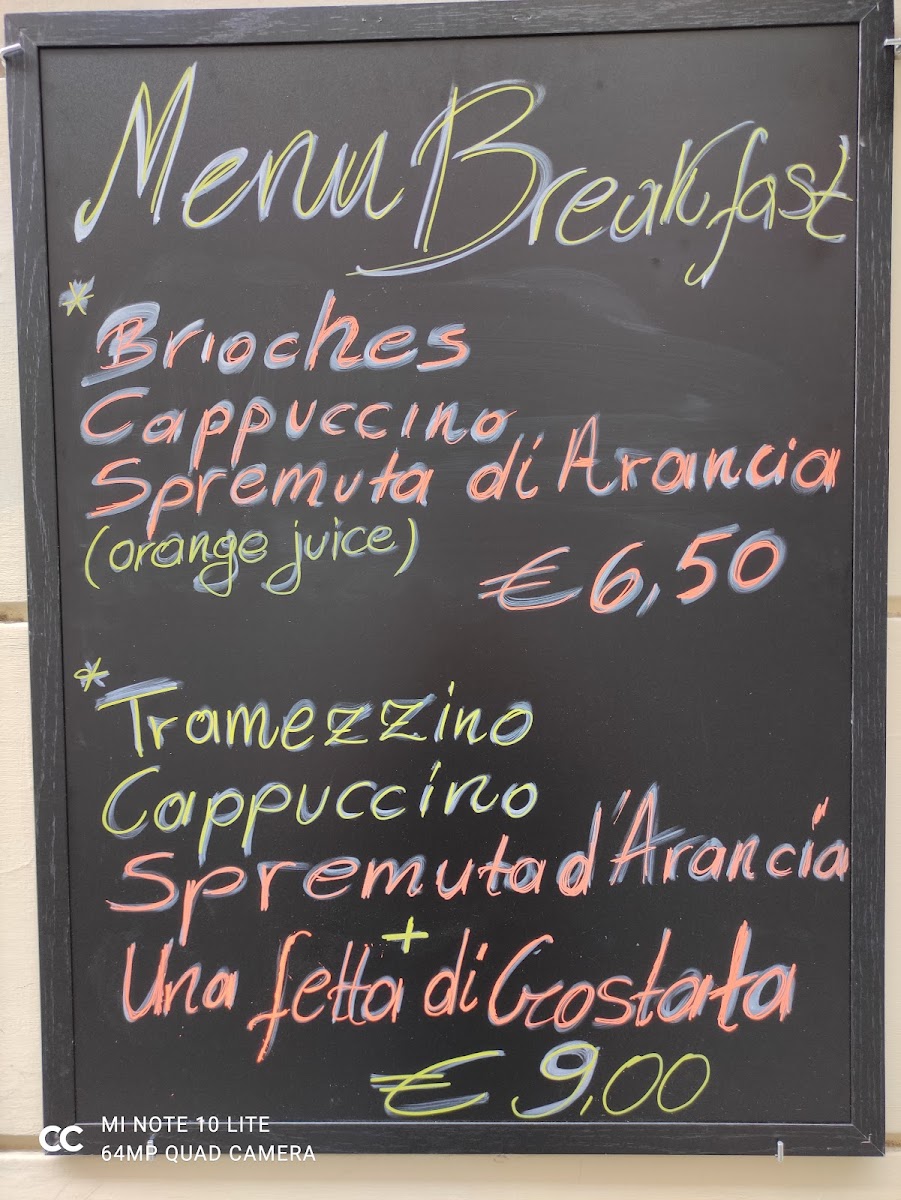 Menu Breakfast
* Brioches
Cappuccino
Spremuta di Arancia
(orange juice)
€ 6,50
* Tramezzino
Cappuccino
Spremuta d'Arancia
+
Una fetta di Crostata
€ 9,00
CC MI NOTE 10 LITE
64MP QUAD CAMERA